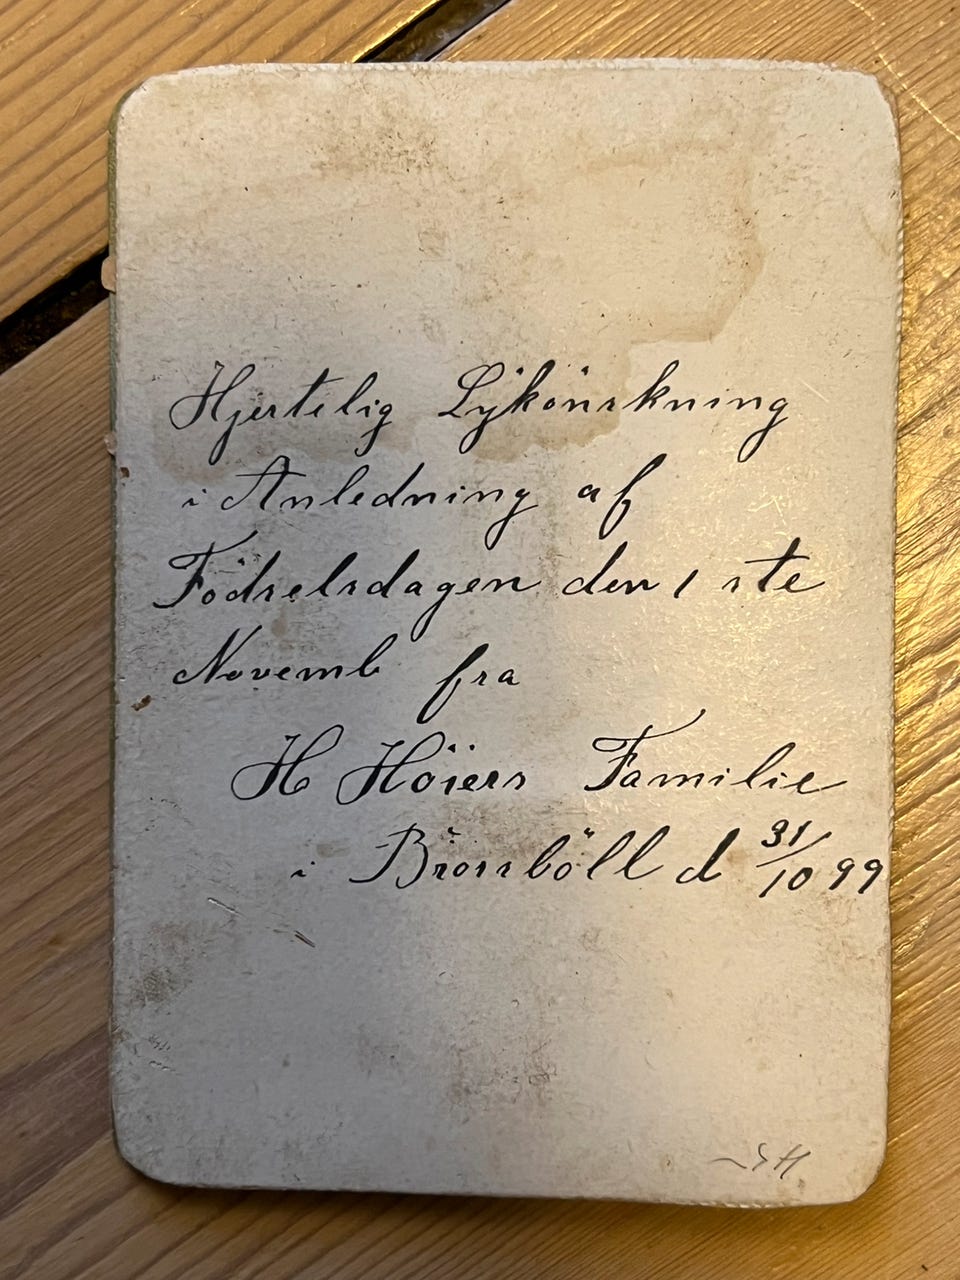 Hjertelig Lykönskning
i Anledning af
Födselsdagen den 1 ste
Novemb fra
H Höiers Familie
i Brörsböll d 31/10 99